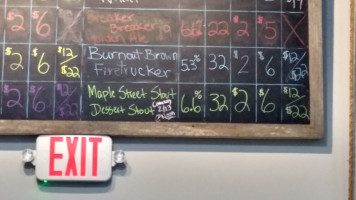 $2 $6 Breaker 6.6% 22 $2 $5 X
Breaker
$2 $6 $12/$22 Burnout Brown 5.3% 32 $2 $6 $12/$22
Firetrucker
$2 $6 Maple Street Stout 6.6% 32 $2 $6 $12/$22
Dessert Stout Coming 2/13
EXIT